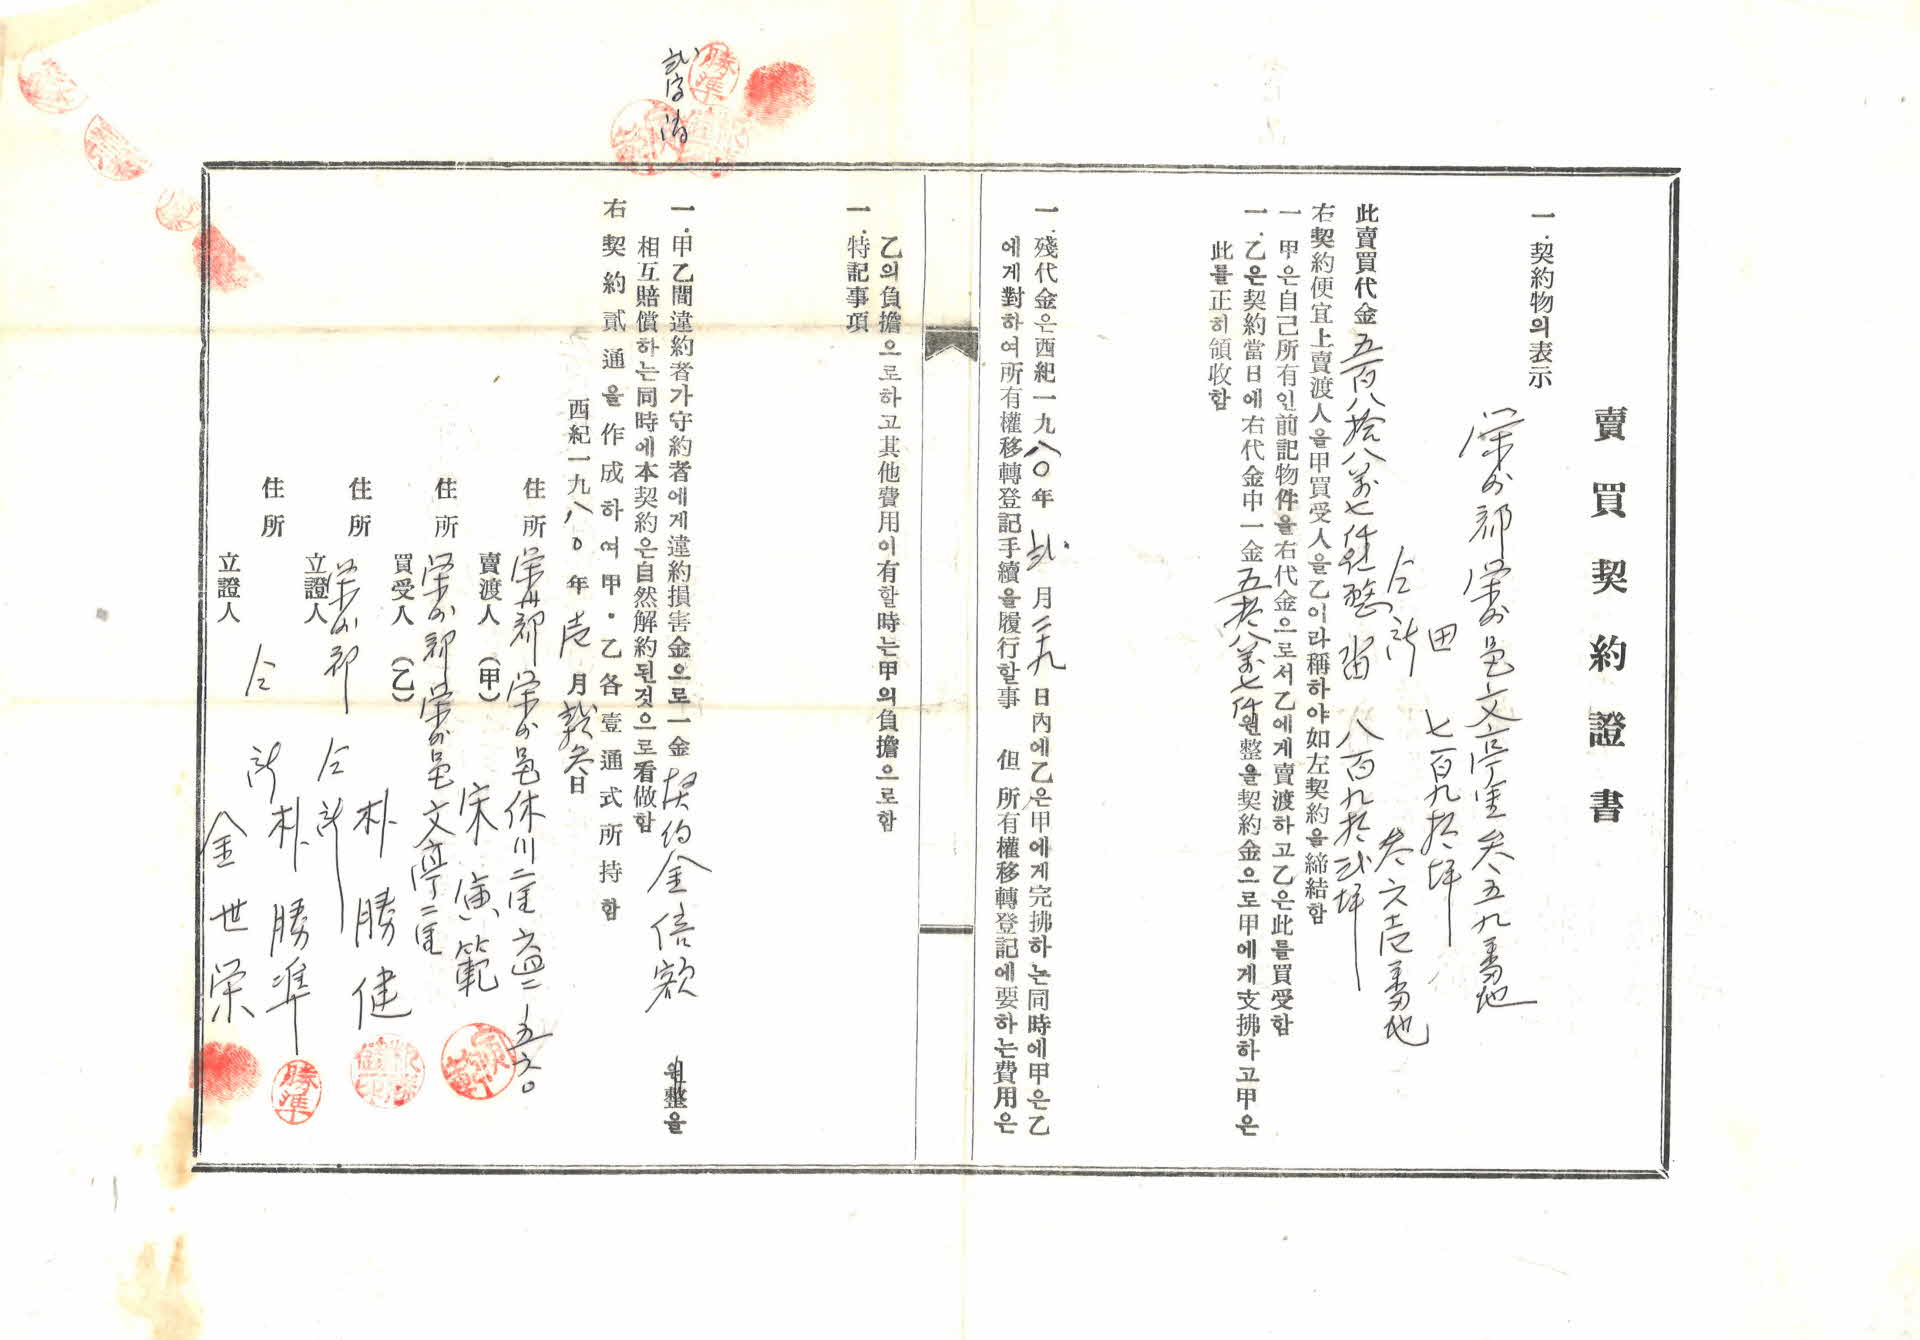 賣買契約證書
一.契約物의表示
榮州郡榮州邑文亭里叁五九番地
田 七百九拾坪
仝所 叁六壱番地
畓 八百九拾弍坪
此賣買代金五百八拾八萬七仟원整
右契約便宜上賣渡人을甲買受人을乙이라稱하야如左契約을締結함
一 甲은自己所有인前記物件을右代金으로서乙에게賣渡하고乙은此를買受함
一.乙은契約當日에右代金中一金五拾八萬七仟원整을契約金으로甲에게支拂하고甲은
此를正히領收함
一.殘代金은西紀一九八〇年弍月二十九日內에乙은甲에게完拂하는同時에甲은乙
에게對하여所有權移轉登記手續을履行할事 但 所有權移轉登記에要하는費用은
乙의負擔으로하고其他費用이有할時는甲의負擔으로함
一.特記事項
一.甲乙間違約者가守約者에게違約損害金으로一金契約金倍額 원整을
相互賠償하는同時에本契約은自然解約된것으로看做함
右契約貳通을作成하여甲・乙各壹通式所持함
西紀一九八〇年壱月 叁日
住所 榮州郡榮州邑休川二里 五六〇
賣渡人(甲) 宋寅範
住所 榮州郡榮州邑文亭二里
買受人(乙) 朴勝健
住所 榮州郡仝所
立證人 朴勝準
住所 仝所
立證人 金世榮
勝準
勝準